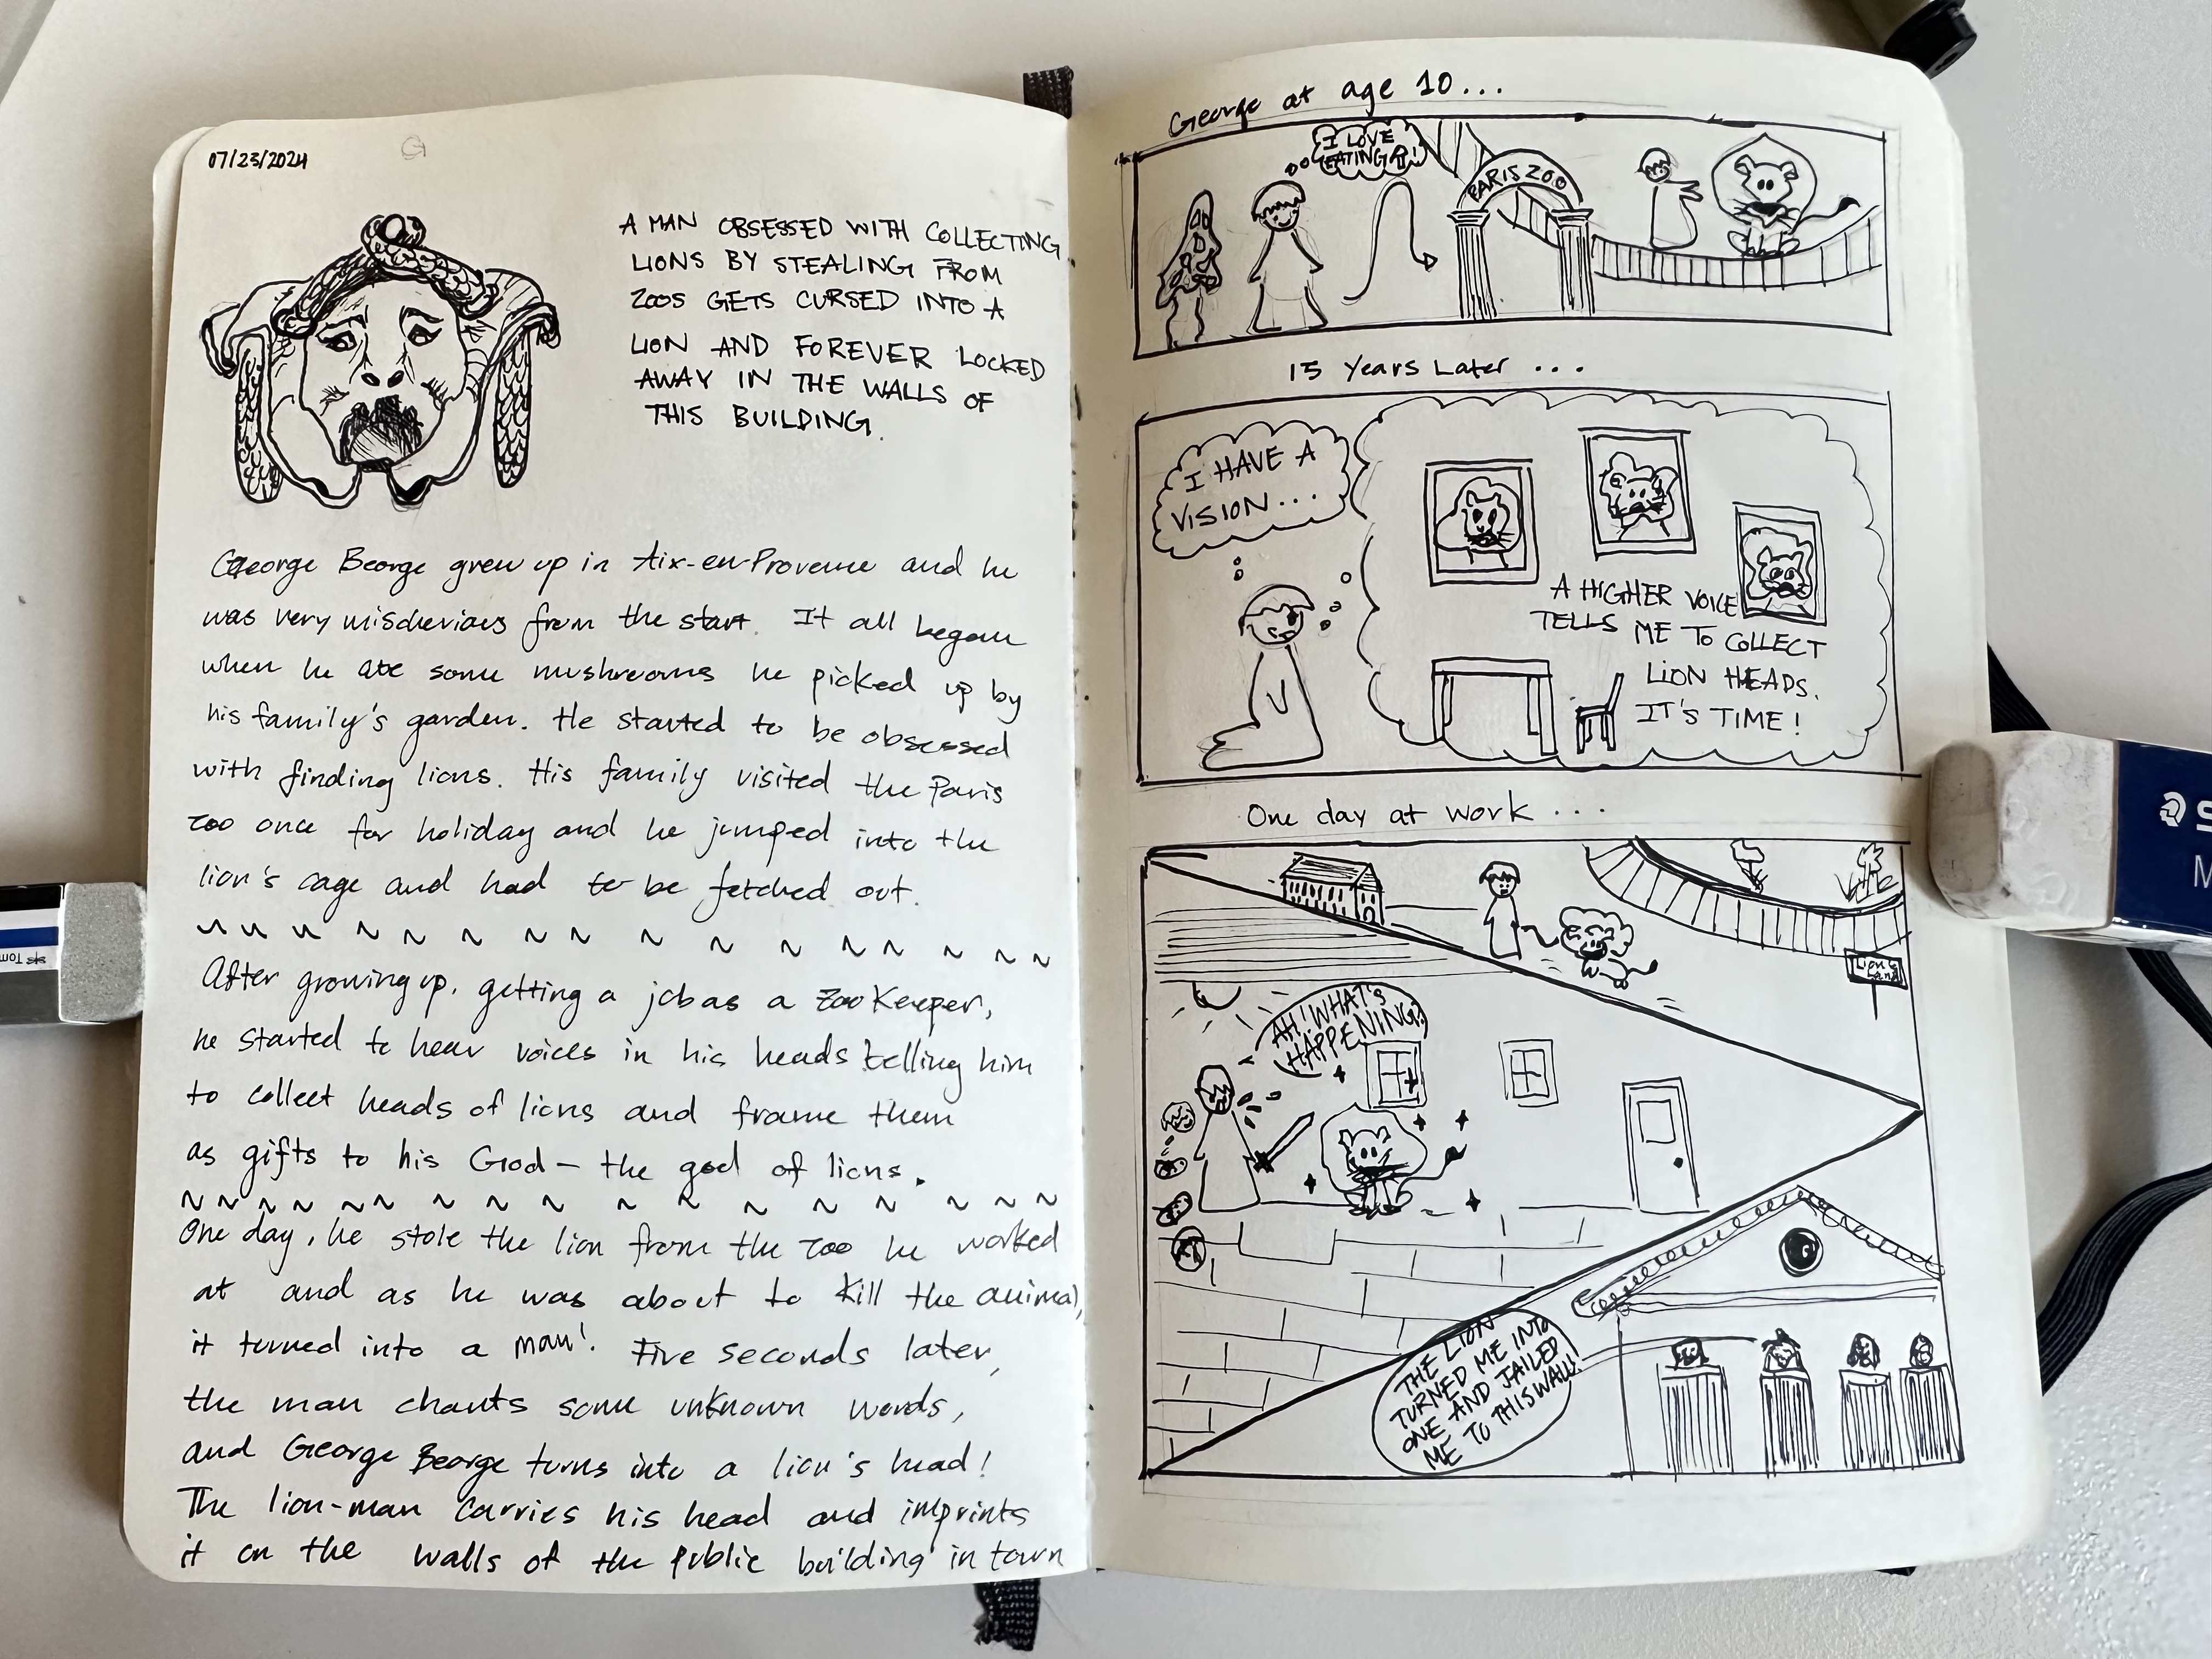 07/23/2024
G
A MAN OBSESSED WITH COLLECTING
LIONS BY STEALING FROM
ZOOS GETS CURSED INTO A
LION AND FOREVER LOCKED
AWAY IN THE WALLS OF
THIS BUILDING.
George Beorge grew up in Aix-en-Provence and he
was very mischevious from the start. It all began
when he ate some mushrooms he picked up by
his family's garden. He started to be obsessed
with finding lions. His family visited the Paris
zoo once for holiday and he jumped into the
lion's cage and had to be fetched out.
~ ~ ~ ~ ~ ~ ~ ~ ~ ~ ~ ~ ~ ~ ~ ~
After growing up, getting a job as a zoo keeper,
he started to hear voices in his heads telling him
to collect heads of lions and frame them
as gifts to his God — the god of lions.
~ ~ ~ ~ ~ ~ ~ ~ ~ ~ ~ ~ ~ ~ ~ ~ ~
One day, he stole the lion from the zoo he worked
at and as he was about to kill the animal,
it turned into a man! Five seconds later,
the man chants some unknown words,
and George Beorge turns into a lion's head!
The lion-man carries his head and imprints
it on the walls of the public building in town
George at age 10...
I LOVE
EATING !
PARIS ZOO
15 Years Later ...
I HAVE A
VISION...
A HIGHER VOICE
TELLS ME TO COLLECT
LION HEADS.
IT'S TIME!
One day at work ...
Land
AH! WHAT'S
HAPPENING?
THE LION
TURNED ME INTO
ONE AND JAILED
ME TO THIS WALL!
S
M
Tom